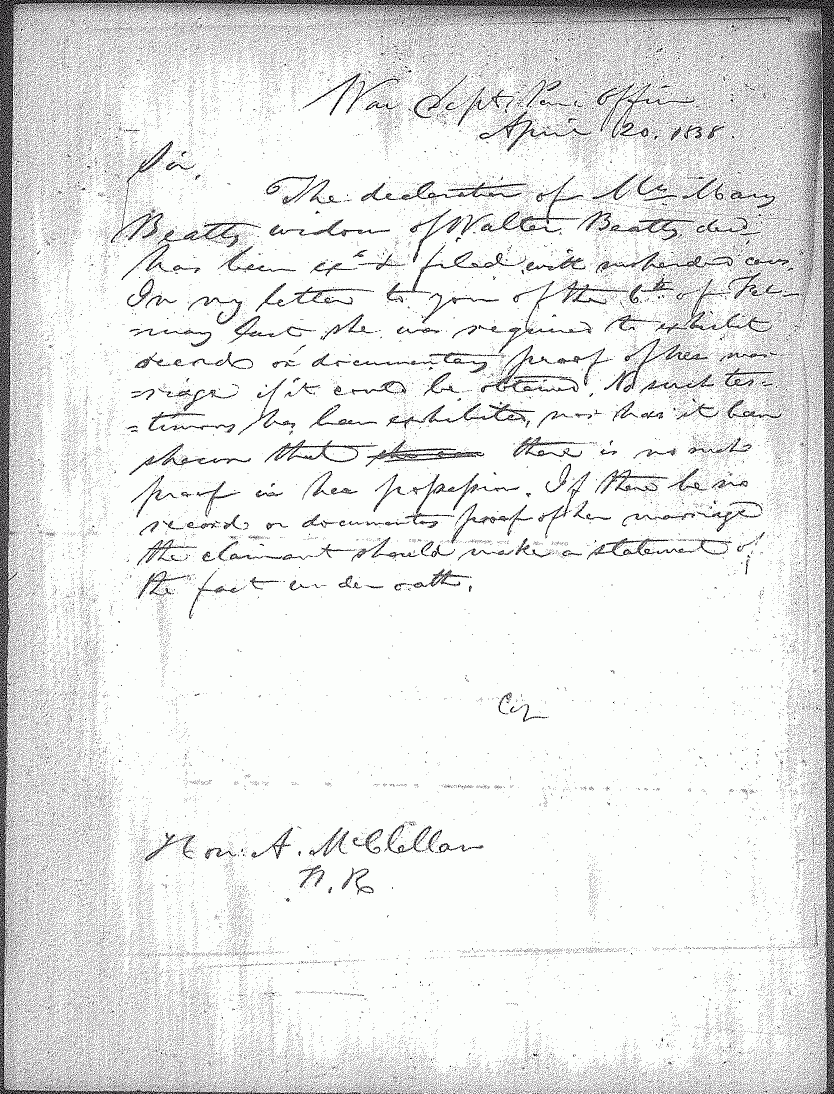 War Dept. Pen. Office
April 20. 1838.
Sir,
The declaration of Mrs Mary
Beatty widow of Walter Beatty decd.
has been exd. & filed with suspended cases.
In my letter to you of the 6th of Feb-
=ruary last she was required to exhibit
record or documentary proof of her mar-
=riage if it could be obtained. No such tes=
=timony has been exhibited, nor has it been
shown that there is no such
proof in her possession. If there be no
record or documentary proof of her marriage
the claimant should make a statement of
the fact under oath.
Hon. A. McClellan
H. R